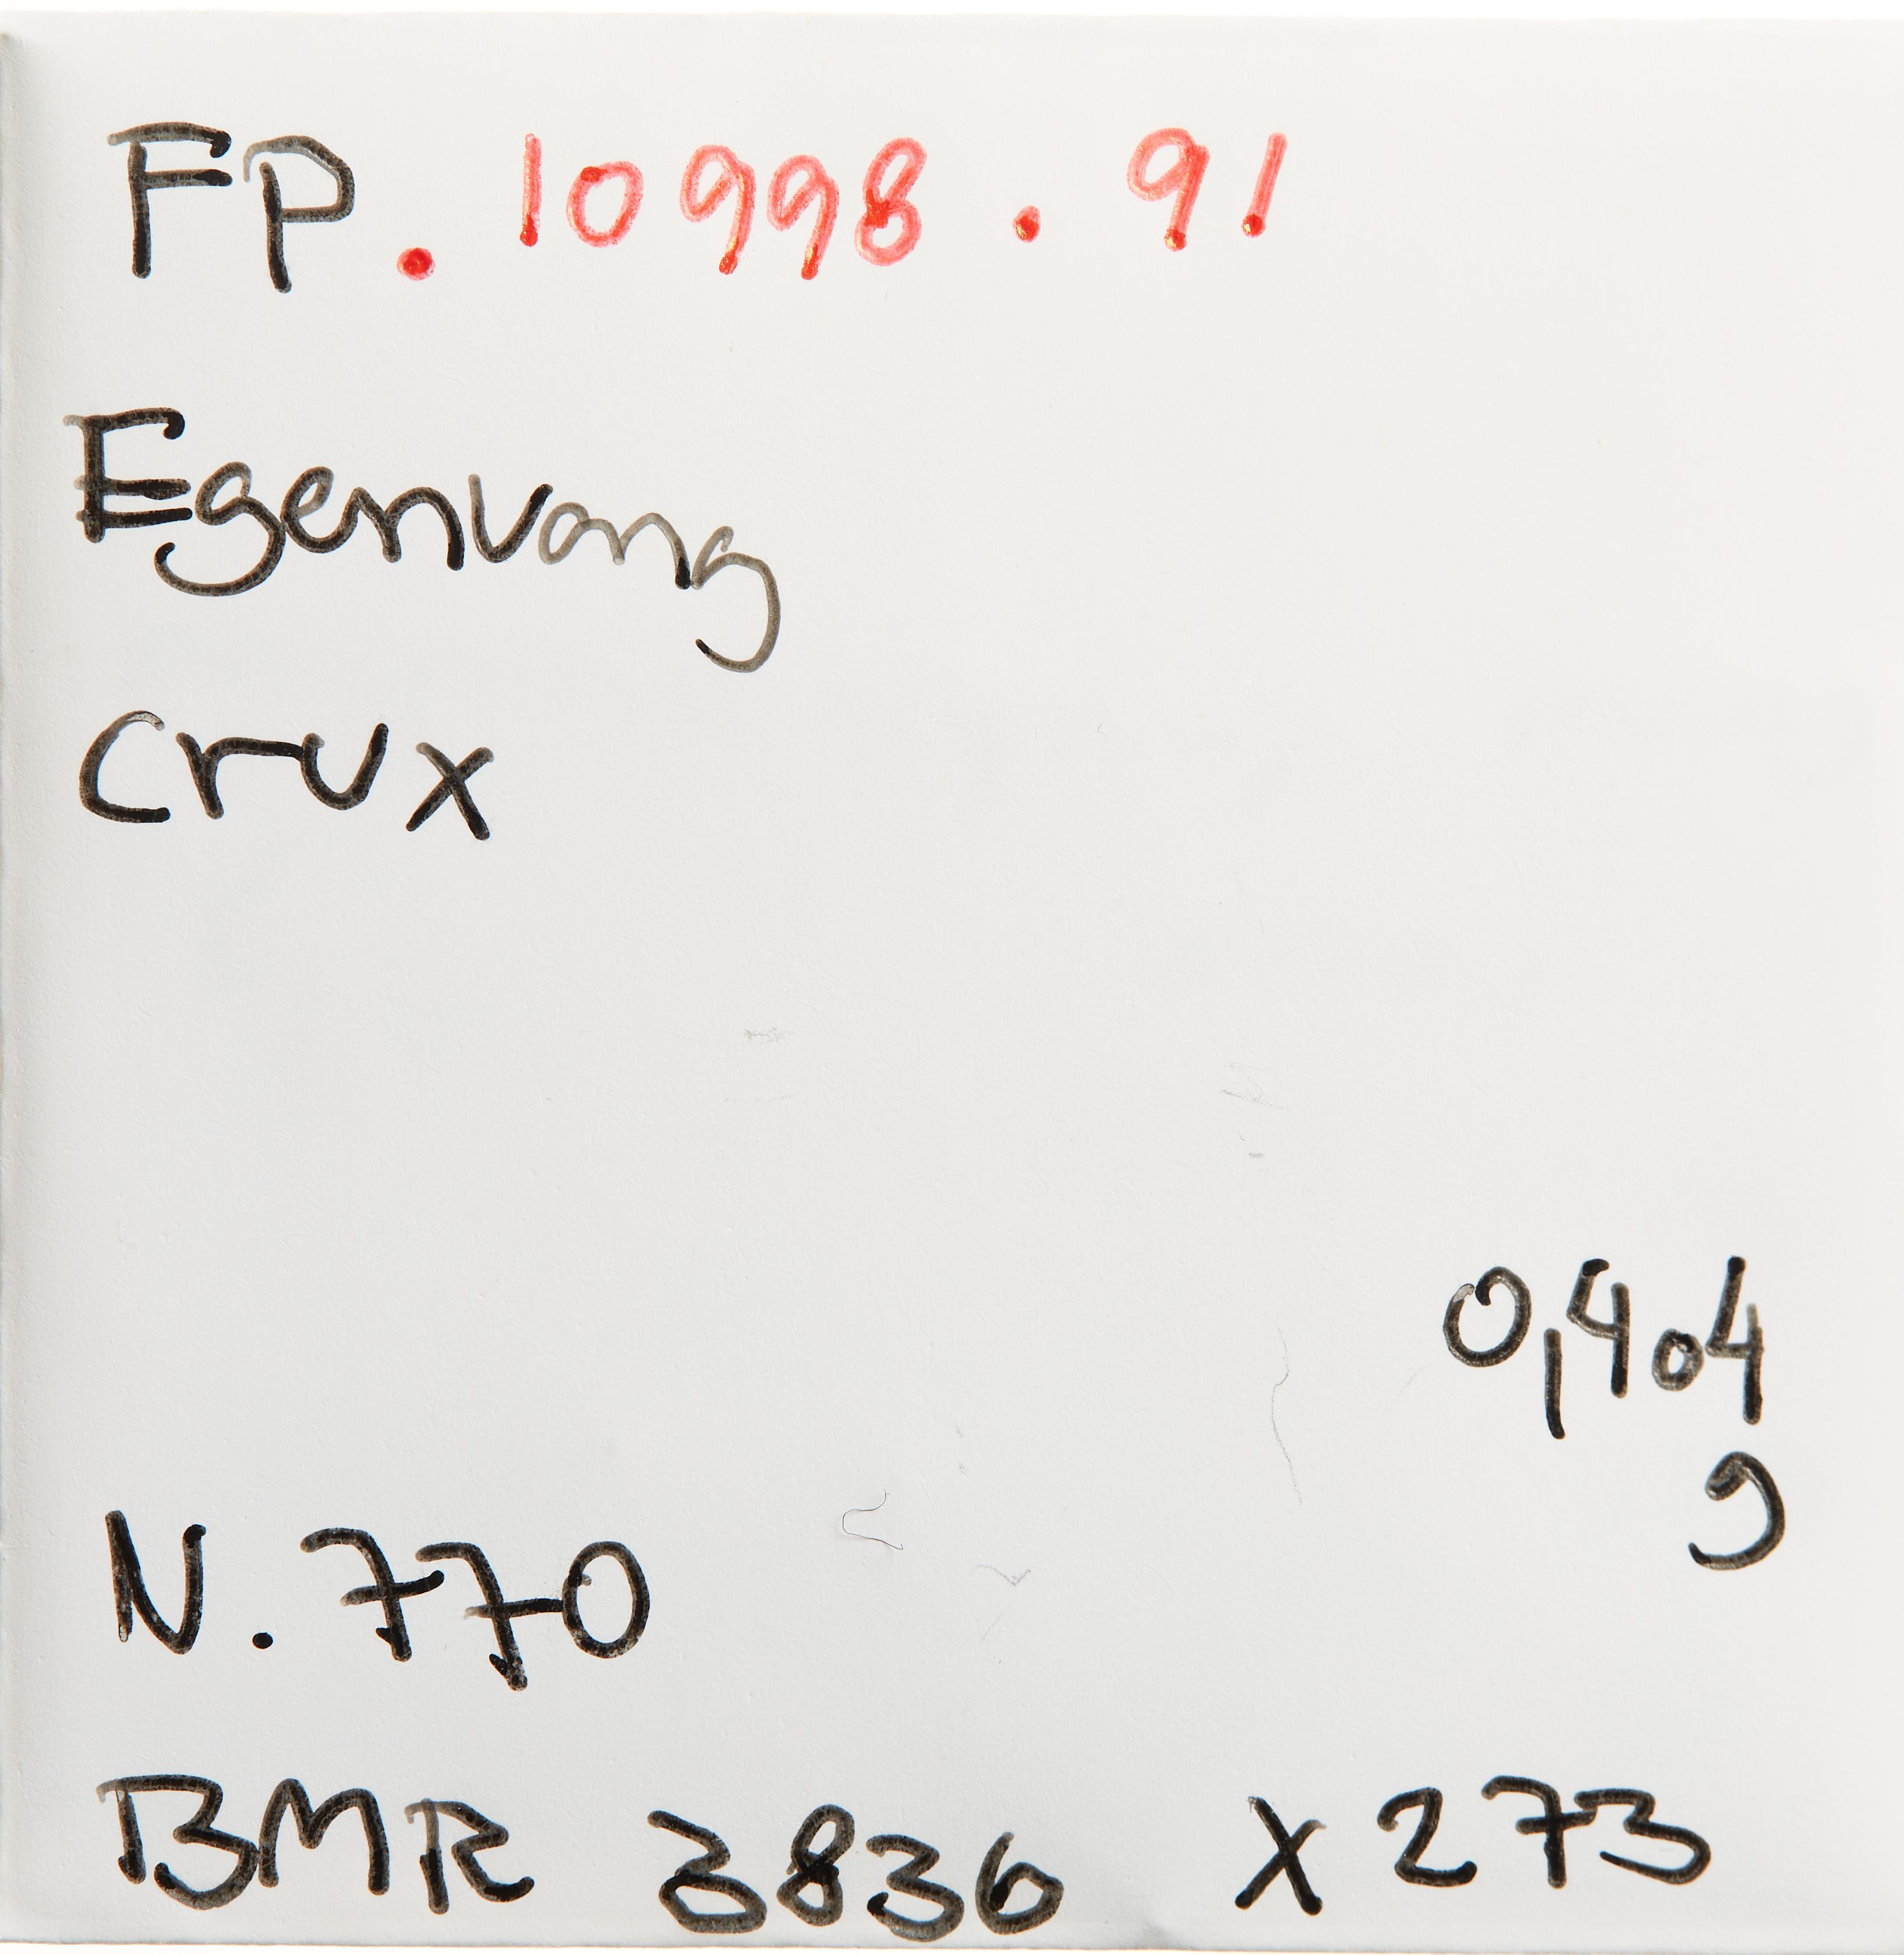 FP. 10998.91
Egenvang
Crux
0,404
g
N. 770
BMR 3836 x273